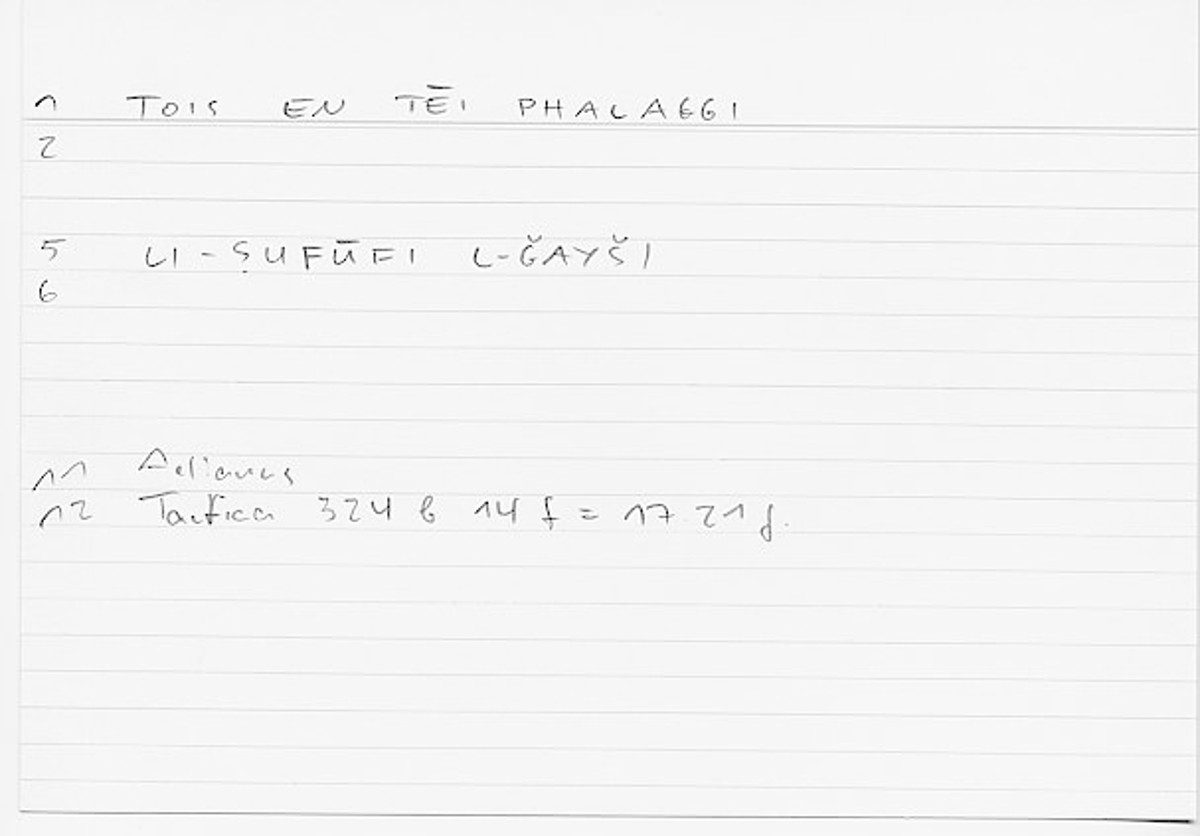 1 TOIS EN TĒI PHALAGGI
2
5 LI-ṢUFŪFI L-ǦAYŠI
6
11 Aelianus
12 Tactica 324 b 14 f = 17.21 f.